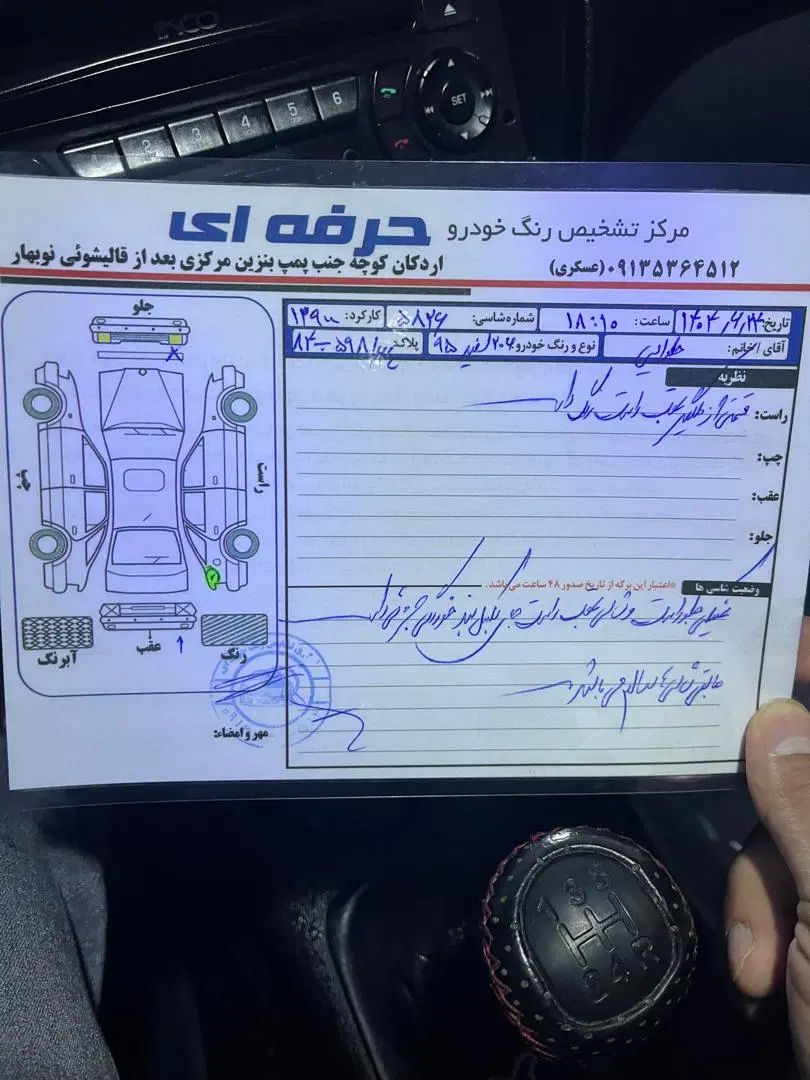 INCO
1 2 3 4 5 6
SET
مرکز تشخیص رنگ خودرو حرفه ای
اردکان کوچه جنب پمپ بنزین مرکزی بعد از قالیشوئی نوبهار
۰۹۱۳۵۳۶۴۵۱۲ (عسکری)
تاریخ: ساعت: ۱۸:۱۰ شماره شاسی: ۵۸۲۶ کارکرد:
آقای/خانم: نوع و رنگ خودرو: ۲۰۶ سفید ۹۵ پلاک:
نظریه
راست: قسمتی از گلگیر عقب راست رنگ دارد
چپ:
عقب:
جلو:
وضعیت شاسی ها
*اعتبار این برگه از تاریخ صدور ۴۸ ساعت می باشد.
جلو راست و شاسی عقب راست خوردگی جزئی دارد
مابقی شاسی ها سالم می باشد
مهر و امضاء:
جلو
راست
چپ
عقب
رنگ
آبرنگ
1 3 5
2 4 R